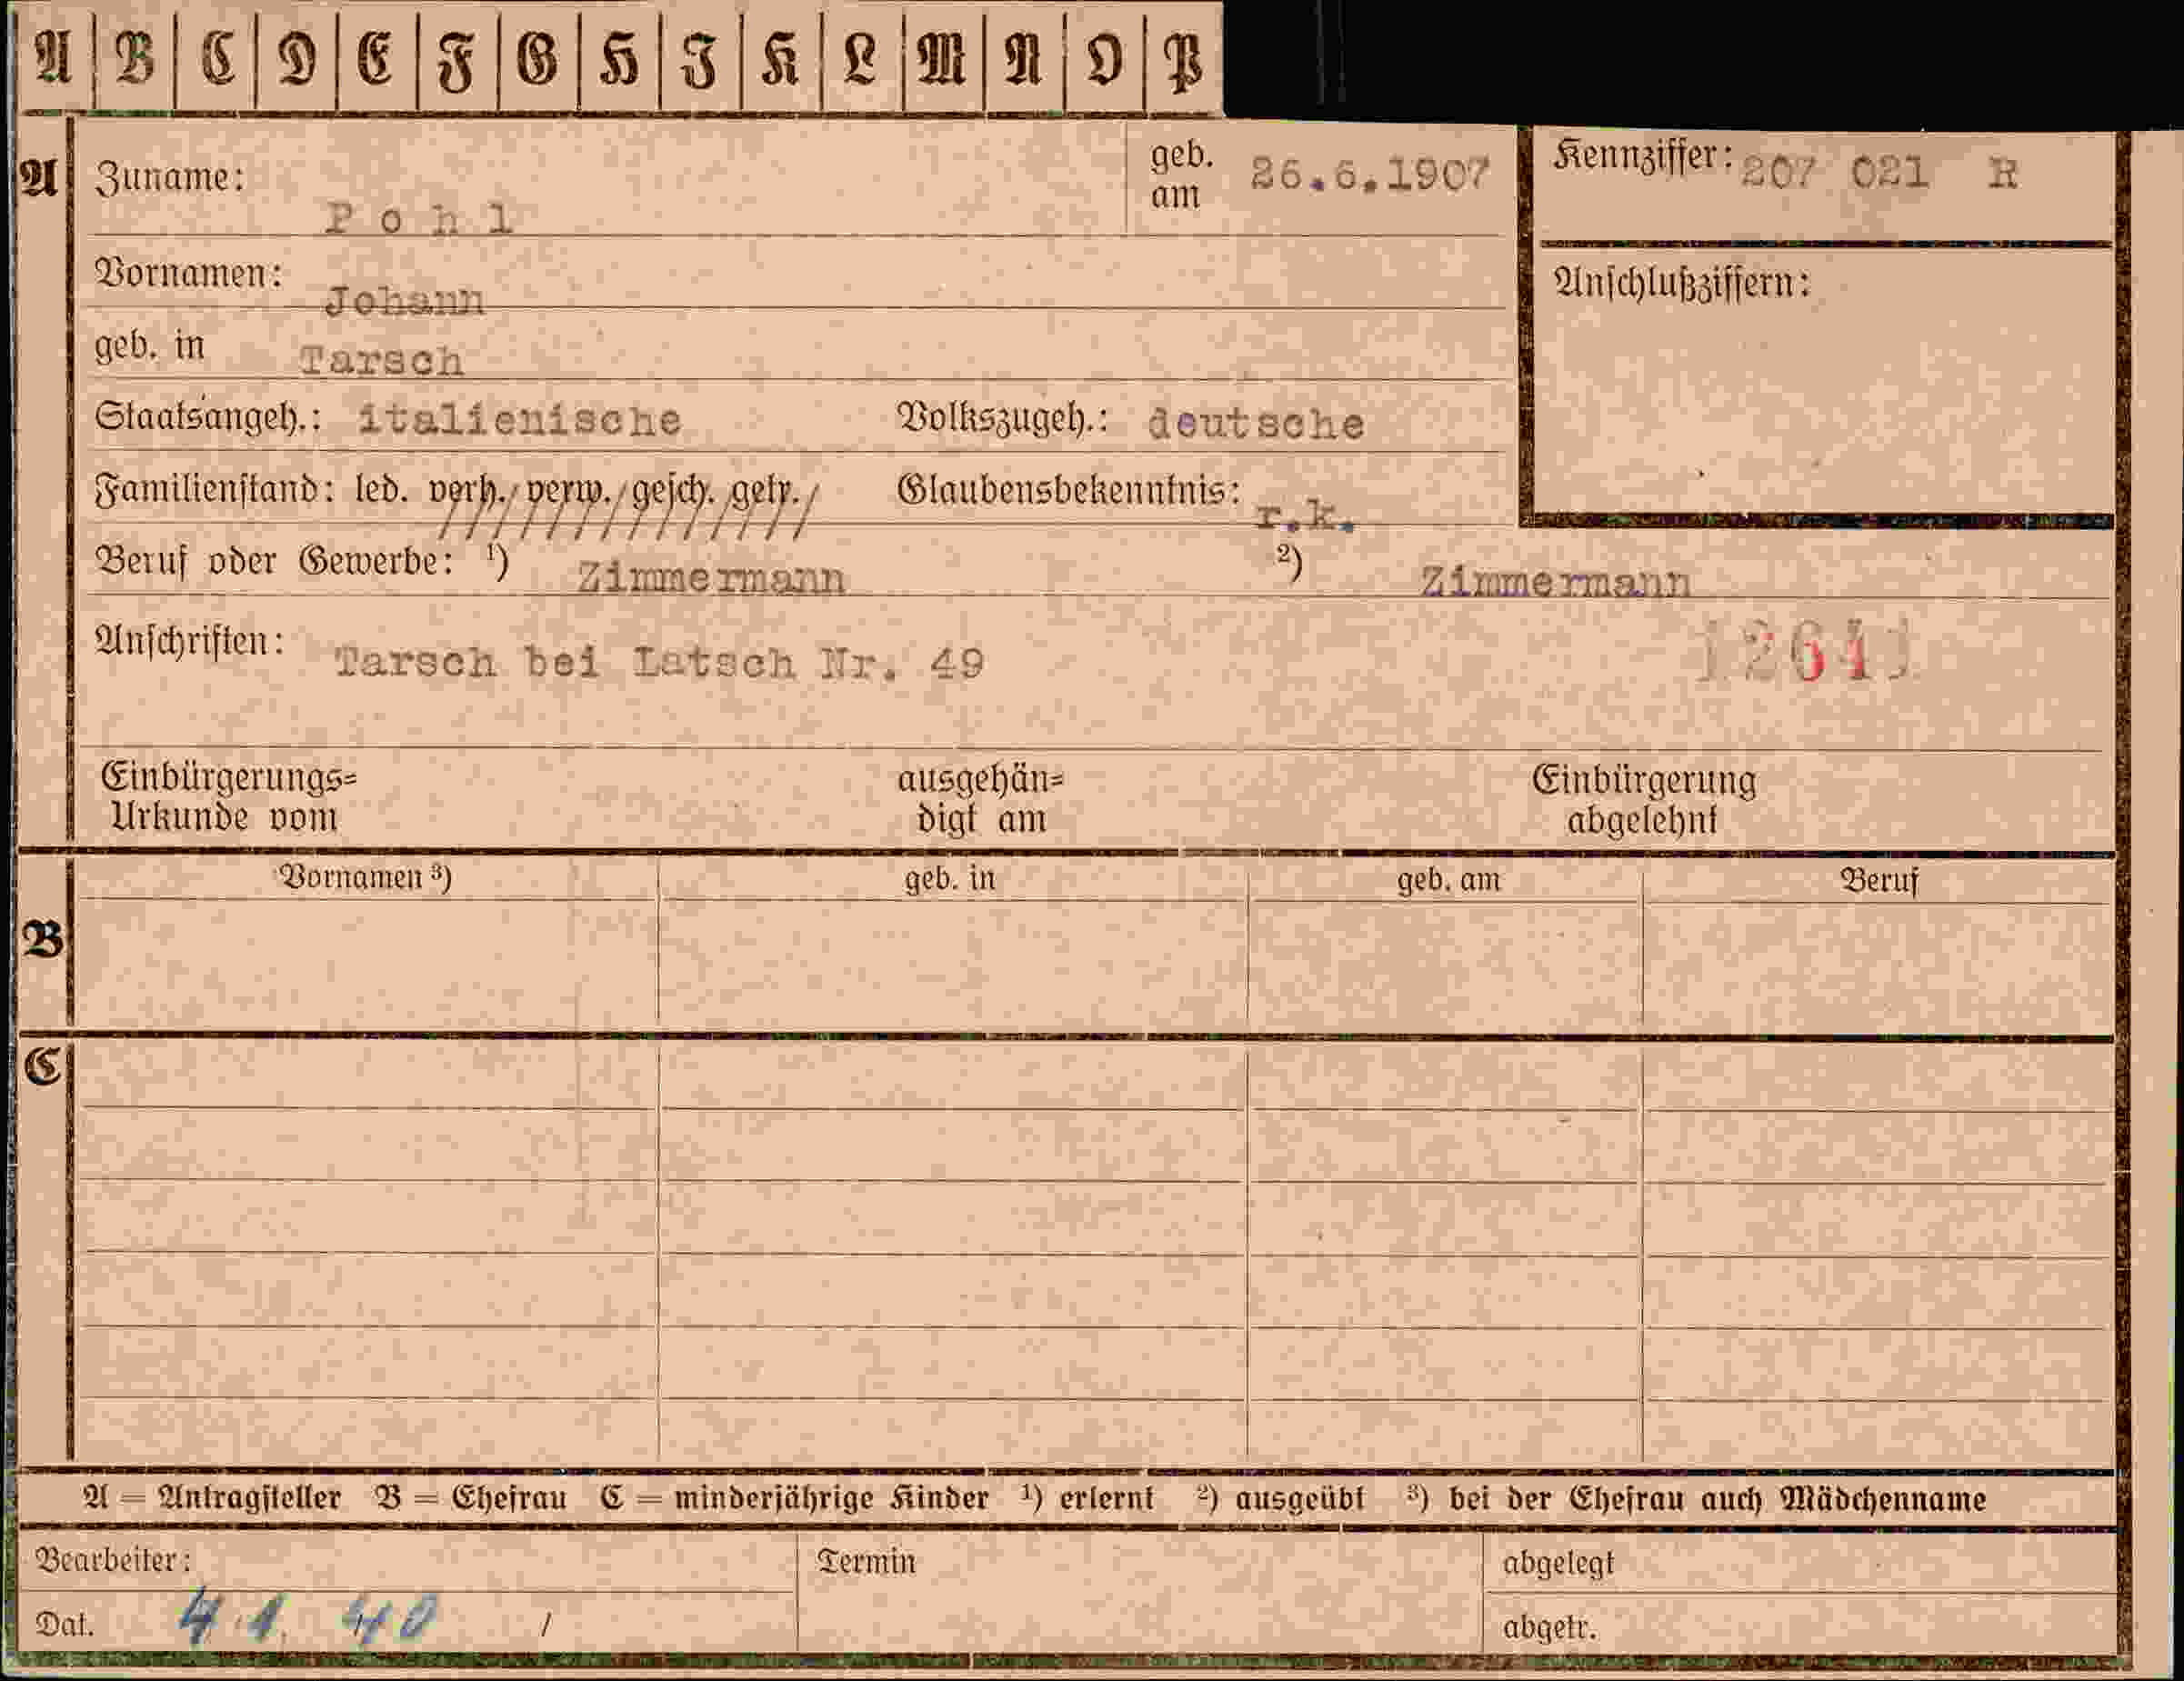 A B C D E F G H I K L M N O P
A Zuname: Pohl geb. am 26.6.1907 Kennziffer: 207 021 R
Vornamen: Johann Anschlußziffern:
geb. in Tarsch
Staatsangeh.: italienische Volkszugeh.: deutsche
Familienstand: led. verh. verw. gesch. getr. Glaubensbekenntnis: r.k.
Beruf oder Gewerbe: ¹) Zimmermann ²) Zimmermann
Anschriften: Tarsch bei Latsch Nr. 49
Einbürgerungs= ausgehän= Einbürgerung
Urkunde vom digt am abgelehnt
Vornamen ³) geb. in geb. am Beruf
B
C
A = Antragsteller B = Ehefrau C = minderjährige Kinder ¹) erlernt ²) ausgeübt ³) bei der Ehefrau auch Mädchenname
Bearbeiter: Termin abgelegt
Dat. 4.1.40 / abgetr.